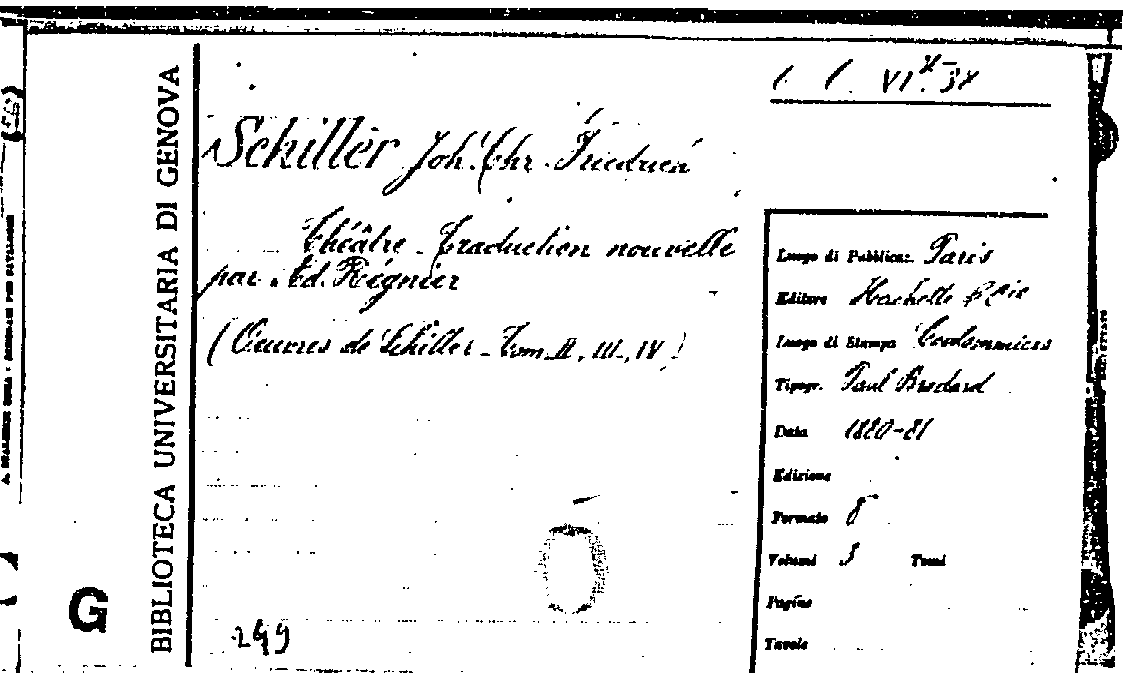 BIBLIOTECA UNIVERSITARIA DI GENOVA
G
Schiller Joh. Chr. Friedrich
Théâtre - Traduction nouvelle
par Ad. Régnier
(Oeuvres de Schiller - Tom. II, III, IV)
249
Luogo di Pubblicaz. Paris
Editore Hachette & Cie
Luogo di Stampa Coulommiers
Tipogr. Paul Brodard
Data 1880-81
Edizione
Formato 8
Volumi 3 Tomi
Pagine
Tavole